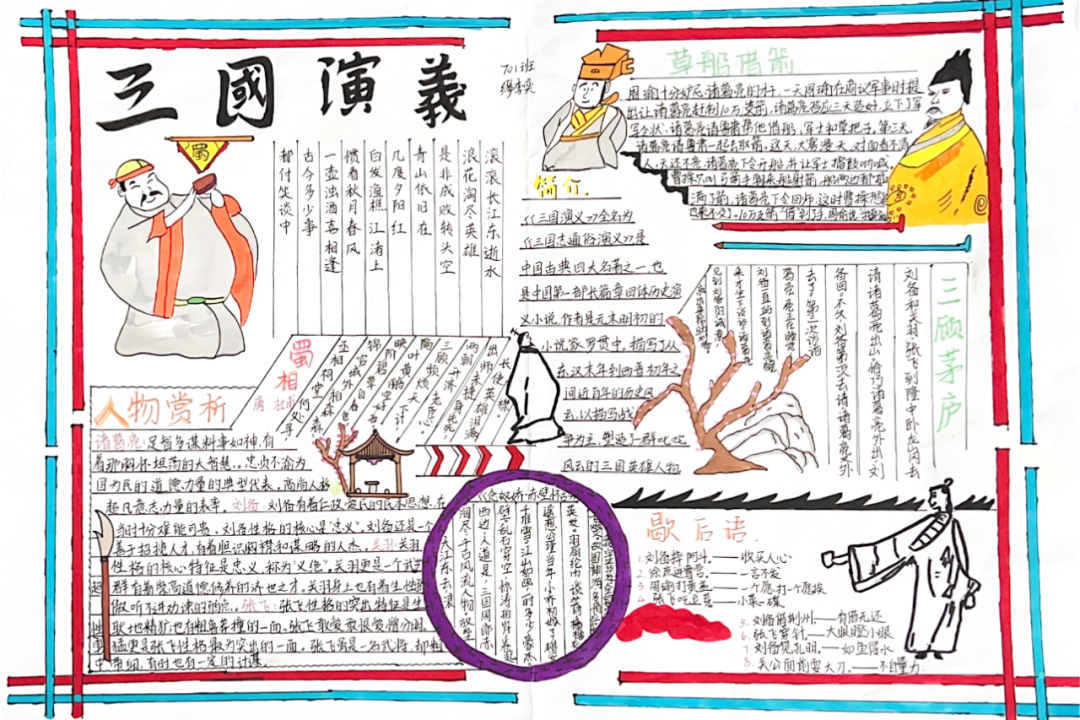 三國演義
701班
蜀
滚滚长江东逝水
浪花淘尽英雄
是非成败转头空
青山依旧在
几度夕阳红
白发渔樵江渚上
惯看秋月春风
一壶浊酒喜相逢
古今多少事
都付笑谈中
草船借箭
周瑜十分妒忌诸葛亮的才干。一天周瑜在商议军事时提
出让诸葛亮赶制10万支箭,诸葛亮答应三天造好,立下了军
军令状,诸葛亮请鲁肃帮他借船、军士和草把子。第三天,
诸葛亮请鲁肃一起去取箭。这天,大雾漫天,对面看不清
人,天还不亮,诸葛亮下令开船,并让军士擂鼓呐喊,
简介.
《三国演义》全名为
《三国志通俗演义》是
中国古典四大名著之一,也
是中国第一部长篇章回体历史演
义小说,作者是元末明初的
小说家罗贯中,描写了从
东汉末年到西晋初年之
间近百年的历史风
云,以描写战
争为主,塑造了一群叱咤
风云的三国英雄人物
三顾茅庐
刘备和关羽、张飞到隆中卧龙岗去
请诸葛亮出山,恰巧诸葛亮外出,刘
备回,不久刘备第二次去请诸葛亮外
去了,第一次访
蜀相
唐 杜甫
丞相祠堂何处寻
锦官城外柏森森
映阶碧草自春色
隔叶黄鹂空好音
三顾频烦天下计
两朝开济老臣心
出师未捷身先死
长使英雄泪满
人物赏析
诸葛亮:足智多谋料事如神,有
着那胸怀坦荡的大智慧,忠贞不渝为
国为民的道德力量的典型代表,高尚人格
超凡意志力量的表率。刘备:刘备有着仁政爱民的民本思想,在
当时十分难能可贵,刘备性格的核心是“忠义”,刘备还是一个
善于招揽人才,有着胆识胸襟和谋略的人杰。关羽:关羽
性格的核心特征是忠义,称为“义绝”。关羽更是一个武
群有着崇高道德修养的济世之才。关羽身上也有着生性骄
傲听不进劝谏的弱点。张飞:张飞性格的突出特征是
耿,也精犷也有粗鲁莽撞的一面,张飞敢爱敢恨爱憎分明,
猛更是张飞性格最为突出的一面,张飞虽是一名武将,却粗
中有细,有时也有一定的计谋。
《念奴娇·赤壁怀古》
大江东去,浪
淘尽,千古风流人物。故垒
西边,人道是,三国周郎赤
壁。乱石穿空,惊涛拍岸,卷起
千堆雪。江山如画,一时多少豪杰。
遥想公瑾当年,小乔初嫁了,雄姿
英发。羽扇纶巾,谈笑间,樯橹
歇后语.
1.刘备摔阿斗.——收买人心
2.徐庶进曹营.——一言不发
3.周瑜打黄盖.——一个愿打一个愿挨
4.张飞吃豆芽——小菜一碟
5.刘备借荆州.——有借无还
6.张飞穿针.——大眼瞪小眼
7.刘备见孔明.——如鱼得水
8.关公面前耍大刀.——不自量力.